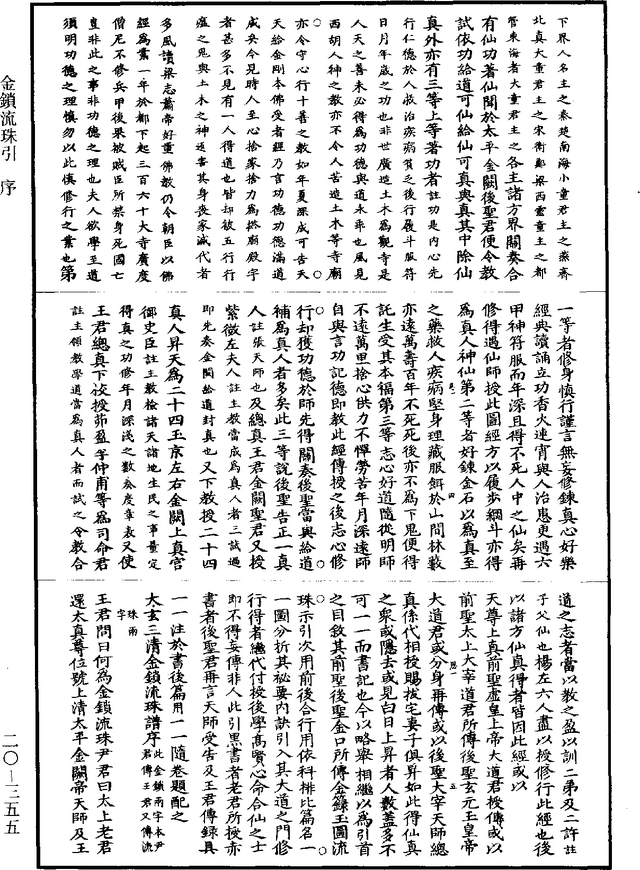 下界人名主之秦楚南海小童君主之燕齊
北真大童君主之宋衛鄭梁西靈童主之都
管東海者大童君主之各主諸方界關奏合
有仙功著仙關於太平金闕後聖君便令教
試依功給道可仙給仙可真與真其中除仙
真外亦有三等上等著功者註功是内心先
行仁德於人救治疾病貧乏後行履斗服符
日月年歲之功也非世廣造土木為觀寺是
人天之善未必得為功德與道永乖也風見
西胡人神之教亦不令人苦造土木等寺廟
亦令守心行十善之教如年夏深成可告天
天給金剛本佛受者經乃言功德功德滿道
成矣今見時人至心捨家捨力為搭廟殿宇
者甚多不見有一人得道也皆却被五行行
瘟之鬼與土木之神返害其身喪家滅代者
多風讀梁志蕭帝好重佛教仍令朝臣以佛
經為業一年於都下起三百六十大寺廣度
僧尼不修兵甲後果被賊臣所禁身死國亡
豈非此之事非功德之理也夫人欲學至道
須明功德之理慎勿以此慎修行之業也第
一等者修身慎行謹言無妄修鍊真心好樂
經典讀誦立功香火連宵與人治患更遇六
甲神符服而年深且得不死人中之仙矣再
修得遇仙師授此圖經方以履步綱斗亦得
為真人神仙第二等者好鍊金石以為真至
之藥救人疾病堅身理藏服餌於山間林藪
亦遠萬壽百年不死死後亦不為下鬼便得
託生受其本福第三等志心好道隨從明師
不遠萬里捨心供力不憚勞苦年月深遠師
自與言功記德即教此經傳授之後志心修
行却獲功德於師先得關奏後聖當與給道
補為真人者多矣此三等說後聖告正一真
人註張天師也及總真王君金闕聖君又授
紫微左夫人註主教當成為真人者二試過
即先奏金闕給道封真也又下教授二十四
真人昇天為二十四玉京左右金闕上真宮
御史臣註主教檢諸天諸地生民之事量定
得真之功修年月深淺之數奏度章表又使
王君總真下授茆盈字仲甫等為司命君
註主領教學道當為真人者而試之令教合
道之志者當以教之盈以訓二弟及二許註
子父仙也楊左六人盡以授修行此經也後
以諸方仙真得者皆因此經或以
天尊上真前聖虛皇上帝大道君授傳或以
前聖太上大宰道君所傳後聖玄元玉皇帝
大道君或分身再傳或以後聖大宰天師總
真係代相授賜拔宅妻子俱昇如此得仙真
之衆或隱去或見白日上昇者人數蓋多不
可一一而書記也今以略舉相繼以為引首
之目敘其前聖後聖金口所傳金籙玉圖流
珠示引次用前後合行用依科排比篇名一
一圖分折其祕要内訣引入其大道之門修
行得者繼代付授後學高賢心命合仙之士
即不得妄傳非人此引黑書者老君所授亦
書者後聖君再言天師受告及王君傳錄具
一一注於書後篇用一一隨卷題配之
大玄三清金鎖流珠譜序此金鎖兩字本尹君傳王君又傳流珠兩字
王君問曰何為金鎖流珠尹君曰太上老君
還太真尊位號上清太平金闕帝天師及王
金鎖流珠引 序
二〇—三五五